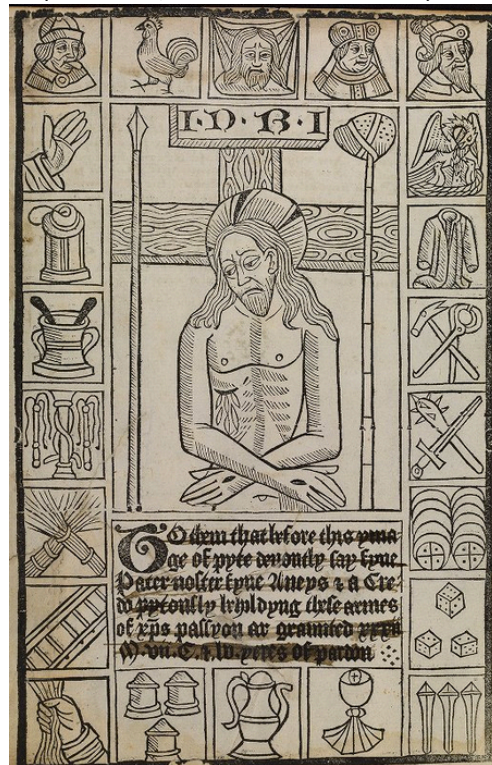 I·N·R·I
TO them that before this yma
ge of pyte deuoutly say fyue
Pater noster fyue Aueys & a Cre
do pytously beholdyng these armes
of xp̄s passyon ar graunted xxxii
M. vii. C. & lv. yeres of pardon